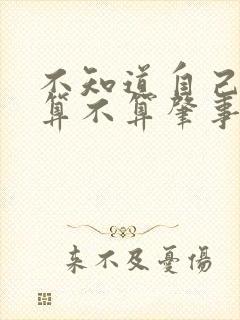 不知道自己
算不算肇事
来不及憂傷